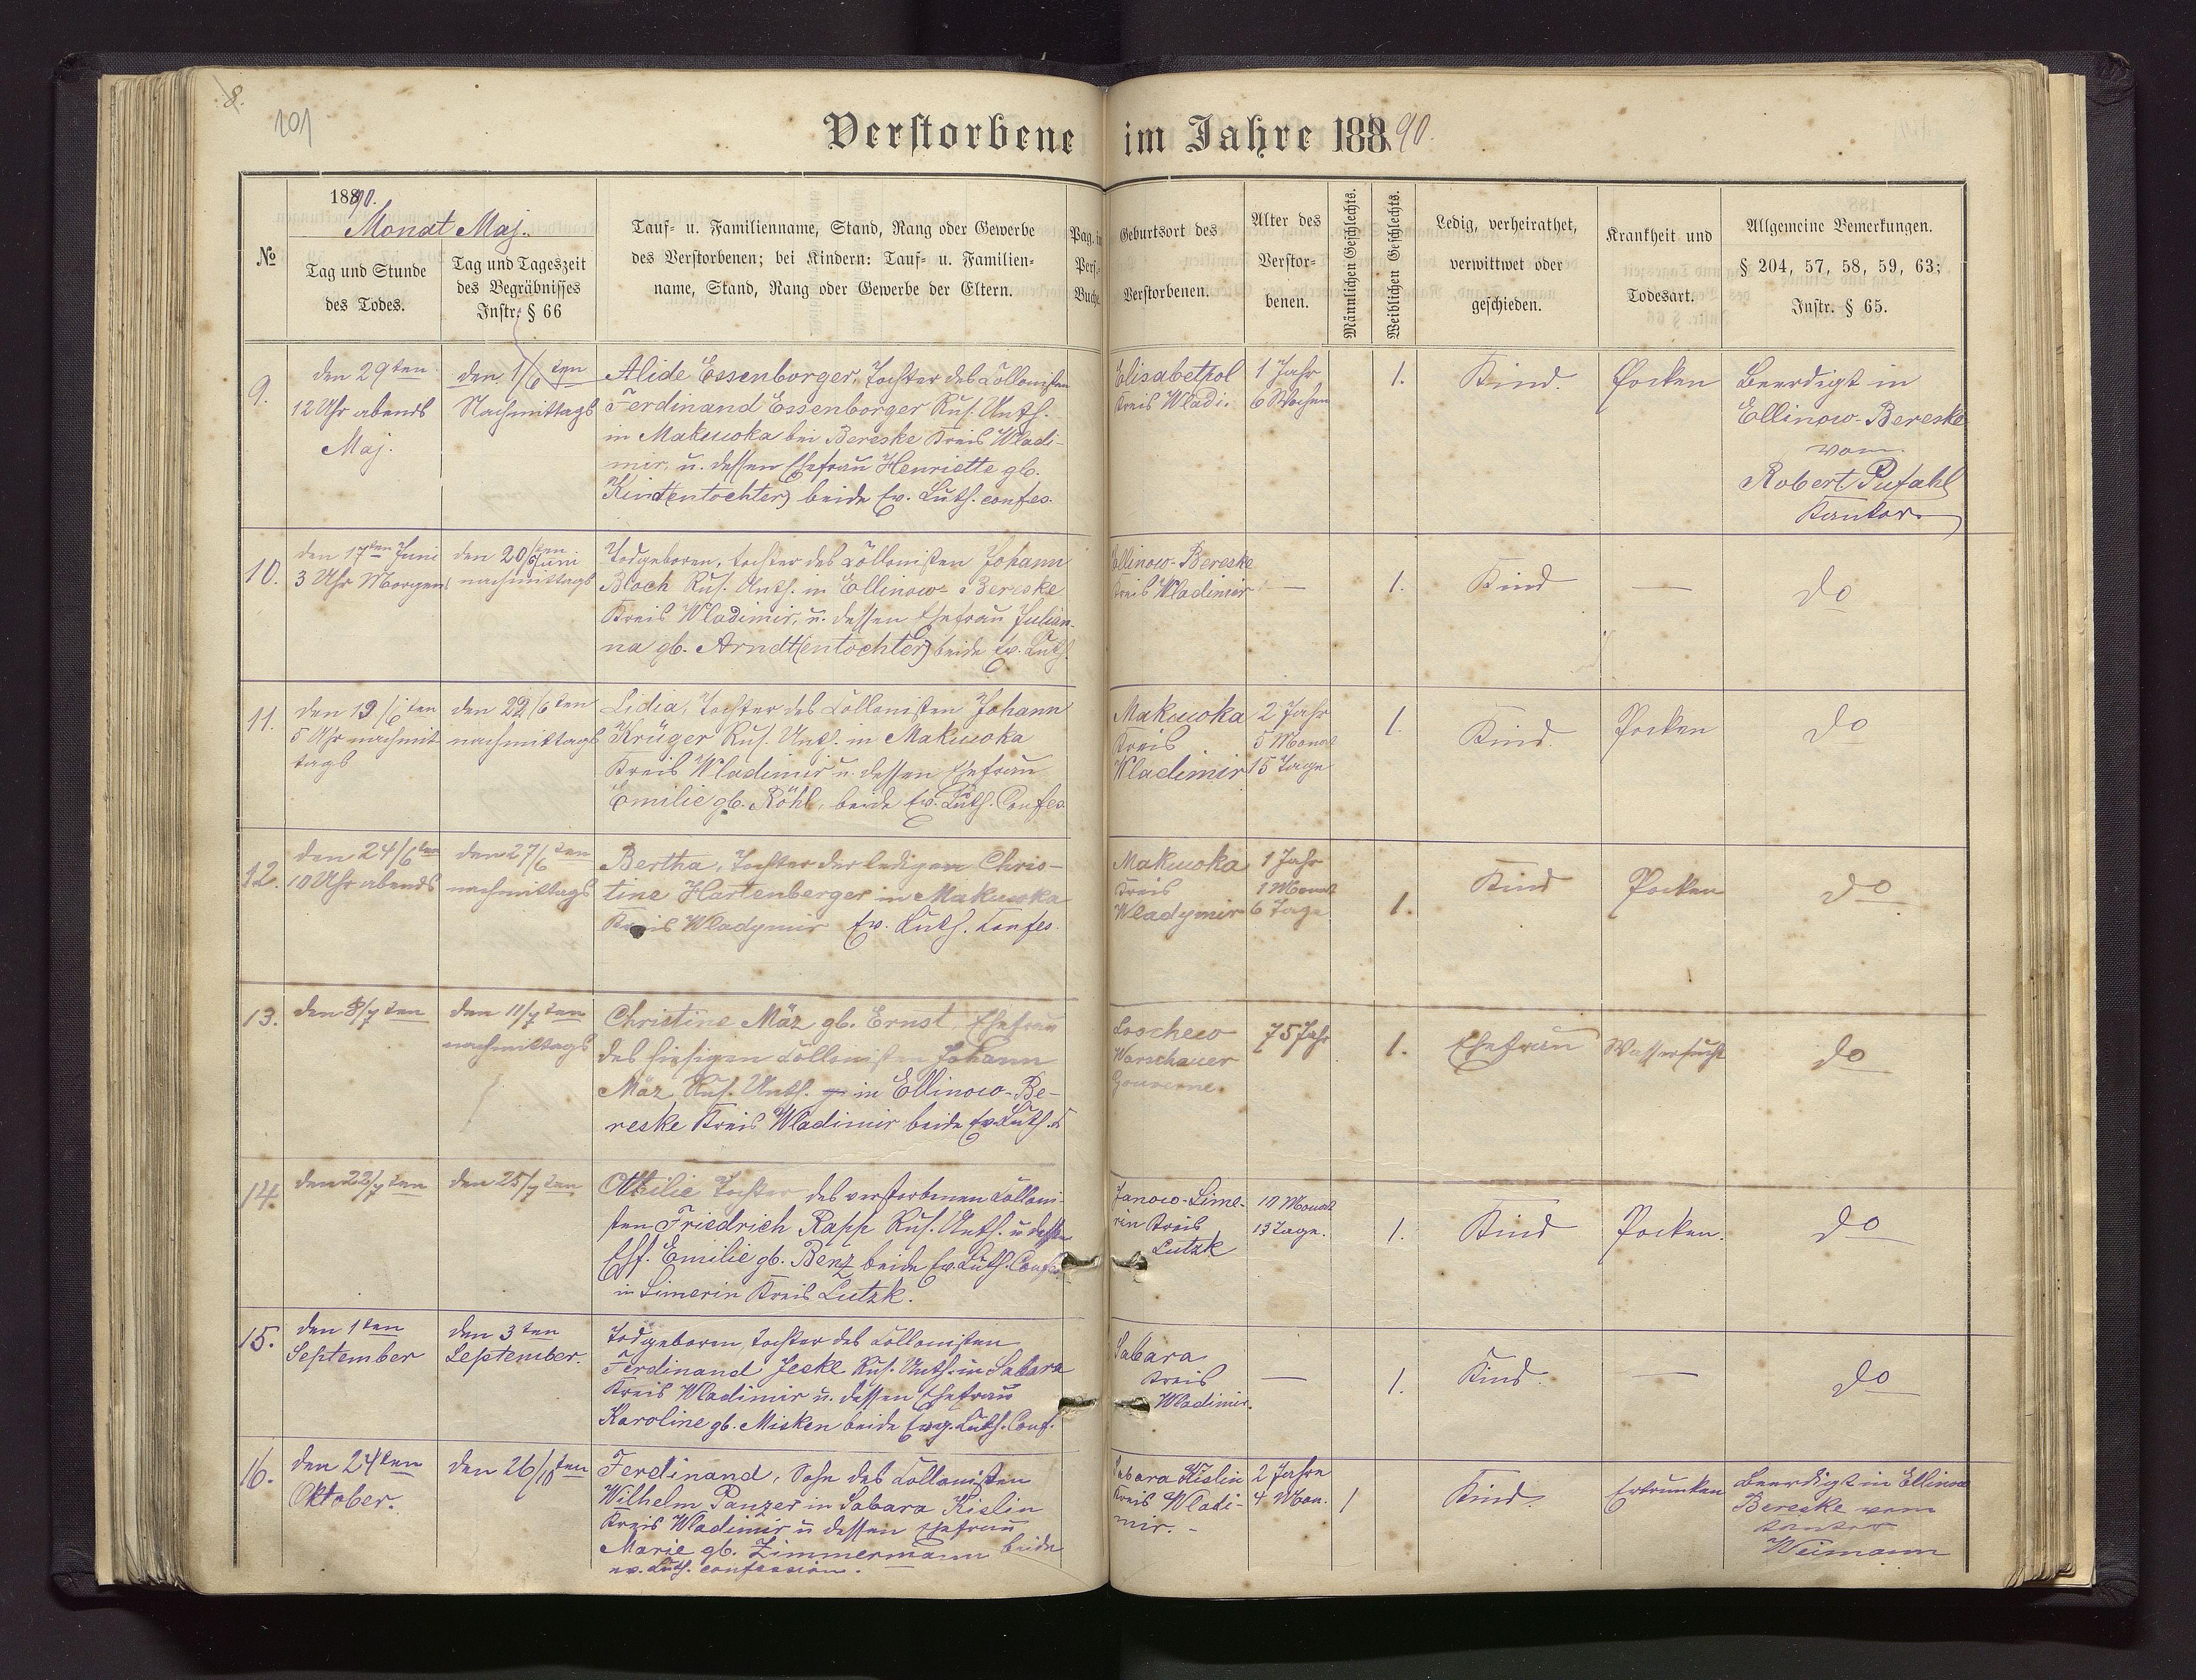 8.
101
Verstorbene im Jahre 188 90.
№
188 90.
Monat Maj.
Tag und Stunde
des Todes.
Tag und Tageszeit
des Begräbnisses
Instr. § 66
Tauf- u. Familienname, Stand, Rang oder Gewerbe
des Verstorbenen; bei Kindern: Tauf- u. Familien-
name, Stand, Rang oder Gewerbe der Eltern.
Pag. in
Pers.-
Buche
Geburtsort des
Verstorbenen.
Alter des
Verstor-
benen.
Männlichen Geschlechts.
Weiblichen Geschlechts.
Ledig, verheirathet,
verwittwet oder
geschieden.
Krankheit und
Todesart.
Allgemeine Bemerkungen.
§ 204, 57, 58, 59, 63;
Instr. § 65.
9.
den 29ten
12 Uhr abends
Maj.
den 1/6 ten
Nachmittags
Alide Essenborger, Tochter des Collonisten
Ferdinand Essenborger Rus. Unth.
in Makuwoka bei Bereske Kreis Wladi-
mir, u. dessen Ehefrau Henriette gb.
Kind(entochter) beide Ev. Luth. confes.
Elisabetpol
Kreis Wladi.
1 Jahr
6 Wochen
1.
Kind.
Pocken
Beerdigt in
Ellinow-Bereske
vom
Robert Pufahl
Kantor.
10.
den 17ten Juni
3 Uhr Morgens
den 20ten Juni
nachmittags
Todgeboren, tochter des Collonisten Johann
Bloch Rus. Unth. in Ellinow-Bereske
Kreis Wladimir, u. dessen Ehefrau Julian-
na gb. Arndt(entochter) beide Ev. Luth.
Ellinow-Bereske
Kreis Wladimir
—
1.
Kind
—
do
11.
den 19/6 ten
5 Uhr nachmit-
tags
den 22/6 ten
nachmittags
Lidia, Tochter des Collonisten Johann
Krüger Rus. Unth. in Makuwoka
Kreis Wladimir u. dessen Ehefrau
Emilie gb. Röhl, beide Ev. Luth. Confes.
Makuwoka
Kreis
Wladimir
2 Jahr
5 Monat
15 Tage
1.
Kind.
Pocken
do
12.
den 24/6 ten
10 Uhr abends
den 27/6 ten
nachmittags
Bertha, Tochter der ledigen Chris-
tine Hartenberger in Makuwoka
Kreis Wladymir Ev. Luth. Confes.
Makuwoka
Kreis
Wladymir
1 Jahr
1 Monat
6 Tage
1.
Kind
Pocken
do
13.
den 8/7 ten
den 11/7 ten
nachmittags
Christine März gb. Ernst, Ehefrau
des hiesigen Collonisten Johann
März Rus. Unth. in Ellinow-Be-
reske Kreis Wladimir beide Ev. Luth. C
Loochew
Warschauer
Gouverne.
75 Jahr
1.
Ehefrau
Wassersucht
do
14.
den 22/7 ten
den 25/7 ten
Ottilie Tochter des verstorbenen Colloni-
sten Friedrich Rapp Rus. Unth. u dessen
Ehf. Emilie gb. Benz beide Ev. Luth. Confes.
in Simerin Kreis Lutzk.
Janow-Sime-
rin Kreis
Lutzk
10 Monat
13 Tage.
1.
Kind
Pocken.
do
15.
den 1ten
September
den 3ten
September.
Todgeboren, tochter des Collonisten
Ferdinand Jeske Rus. Unth. in Sabara
Kreis Wladimir u. dessen Ehefrau
Karoline gb. Misken beide Evg. Luth. Conf.
Sabara
Kreis
Wladimir.
—
1.
Kind.
—
do
16.
den 24ten
Oktober.
den 26/10 ten
Ferdinand, Sohn des Collonisten
Wilhelm Panzer in Sabara Kislin
Kreis Wladimir u dessen Ehefrau
Marie gb. Zimmermann beide
ev. Luth. confession.
Sabara Kislin
Kreis Wladi-
mir.
2 Jahre
4 Mon.
1
Kind.
Ertrunken
Beerdigt in Ellinow
Bereske vom
Kantor
Weimann